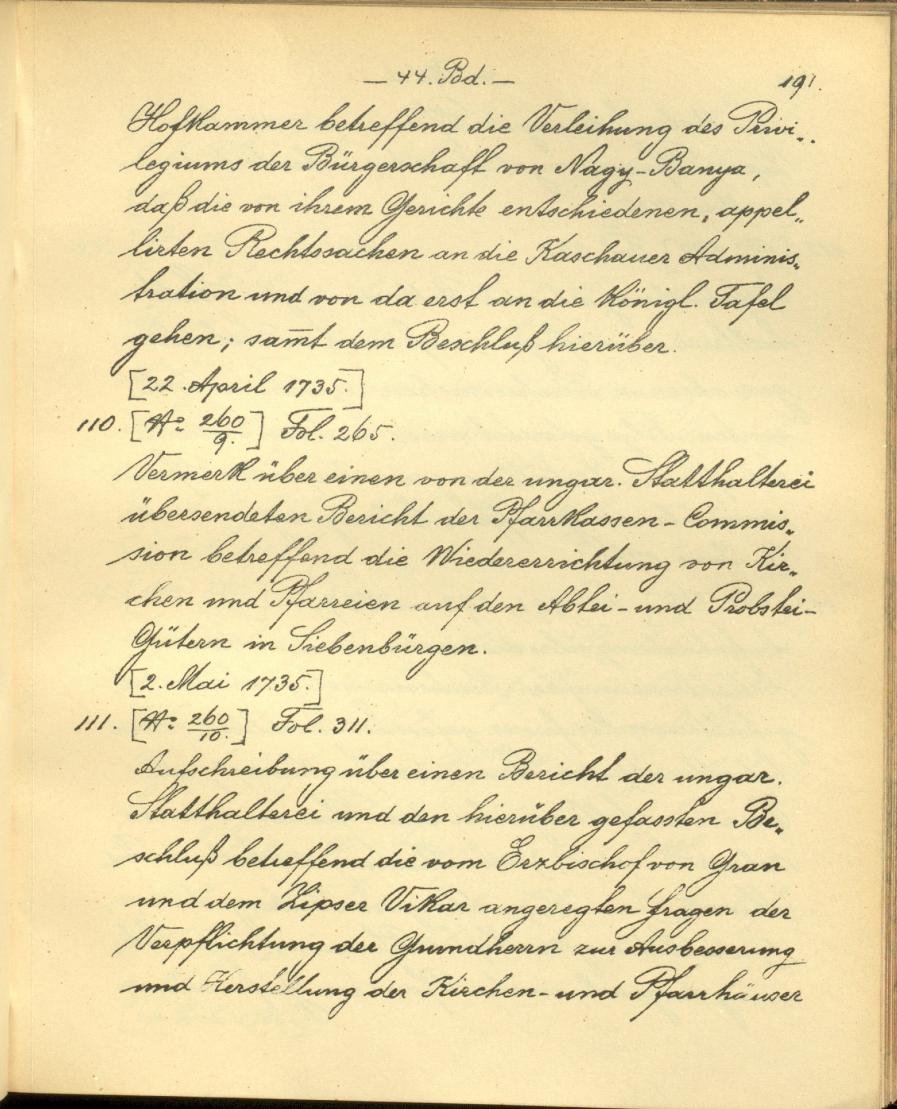 — 44. Bd. —
191.
Hofkammer betreffend die Verleihung des Privi„
legiums der Bürgerschaft von Nagy-Banya,
daß die von ihrem Gerichte entschiedenen, appel„
lirten Rechtssachen an die Kaschauer Adminis„
tration und von da erst an die Königl. Tafel
gehen; sam̄t dem Beschluß hierüber.
[22. April 1735.]
110. [No 260/9.] Fol. 265.
Vermerk über einen von der ungar. Statthalterei
übersendeten Bericht der Pfarrkassen-Commis„
sion betreffend die Wiedererrichtung von Kir„
chen und Pfarreien auf den Abtei- und Probstei-
Gütern in Siebenbürgen.
[2. Mai 1735.]
111. [No 260/10.] Fol. 311.
Aufschreibung über einen Bericht der ungar.
Statthalterei und den hierüber gefassten Be„
schluß betreffend die vom Erzbischof von Gran
und dem Zipser Vikar angeregten Fragen der
Verpflichtung der Grundherrn zur Ausbesserung
und Herstellung der Kirchen- und Pfarrhäuser